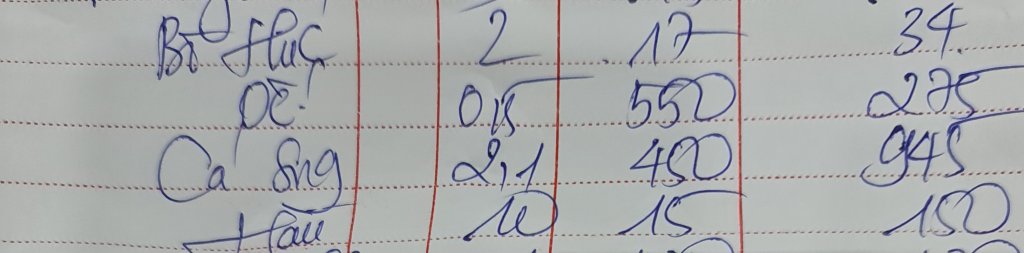 Bò húc 2 17 34
Ốc 0,5 550 275
Cá Sng 2,1 450 945
Hàu 10 15 150